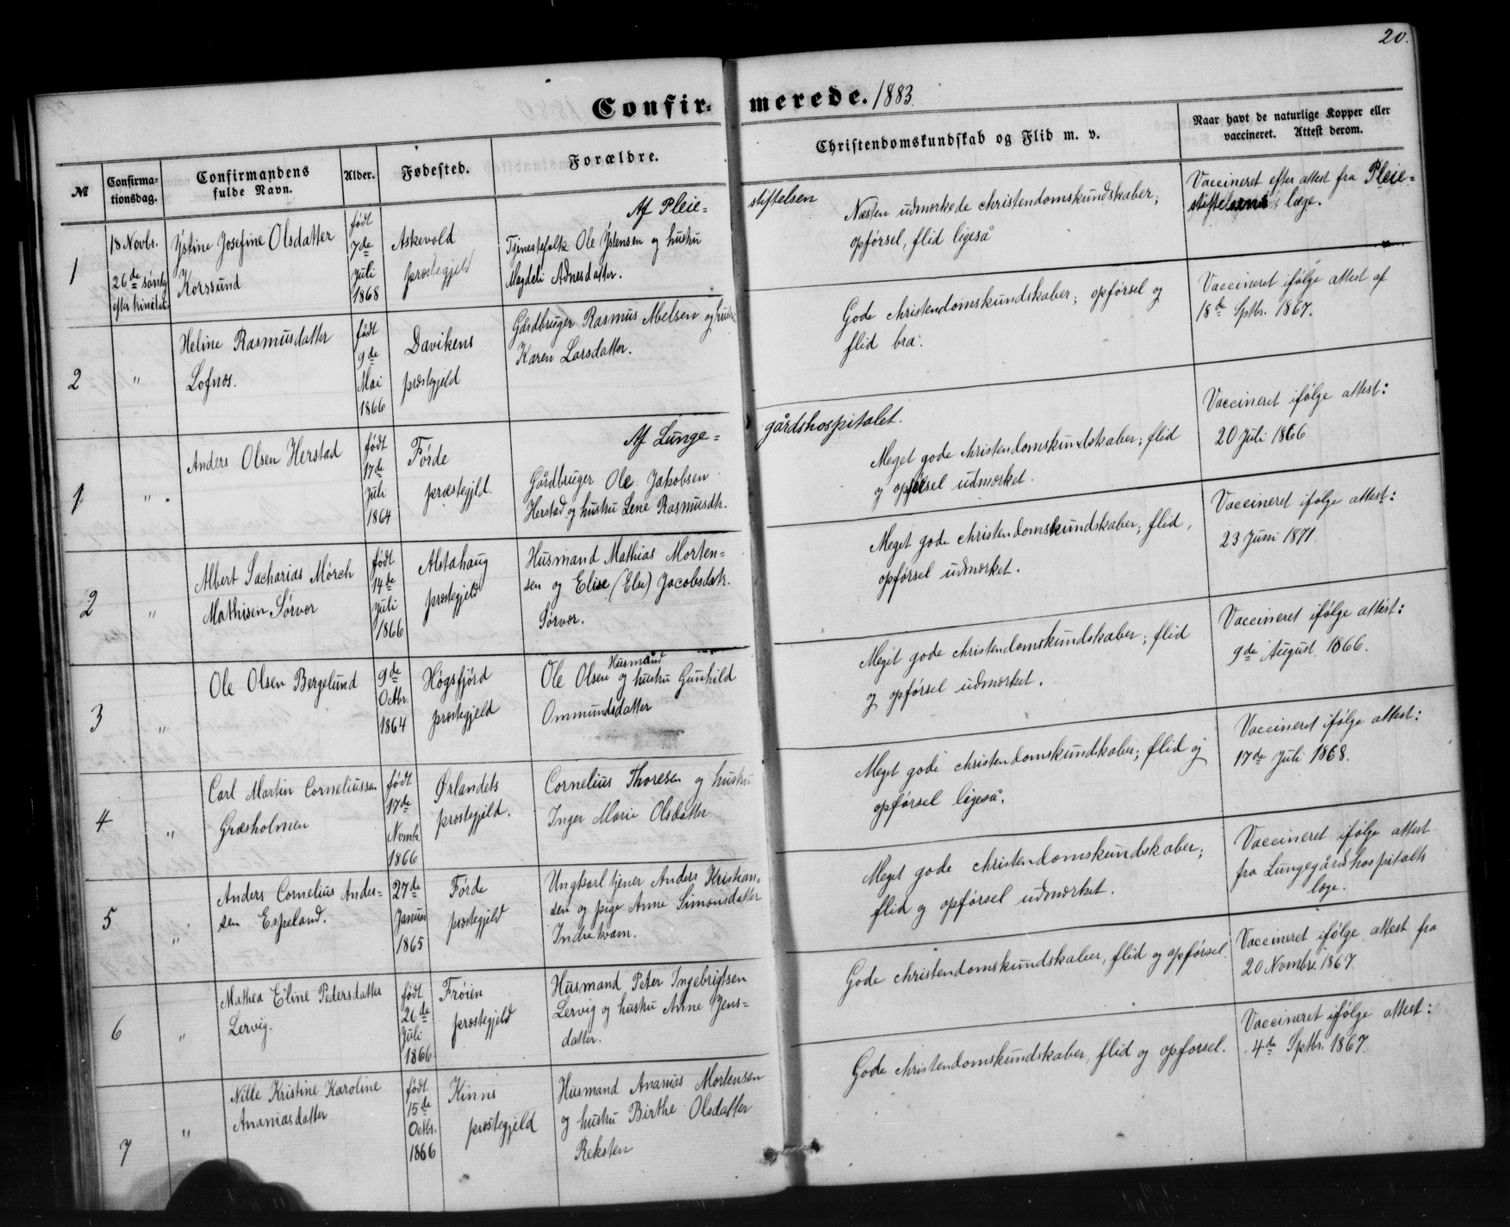 20.
Confirmerede. 1883
No
Confirma-
tionsdag.
Confirmandens
fulde Navn.
Alder.
Fødested.
Forældre.
Christendomskundskab og Flid m. v.
Naar havt de naturlige Kopper eller
vaccineret. Attest derom.
Af Pleie= stiftelsen
1
18 Novbr.
26de søndg
efter trinitatis
Ystine Josefine Olsdatter
Korssund
født
7de
Juli
1868
Askevold
præstegjeld
Tjenestefolk Ole Ystensen og hustru
Magdeli Adnesdatter.
Næsten udmærkede christendomskundskaber;
opførsel, flid ligeså
Vaccineret efter attest fra Pleie=
stiftelsens læge.
2
"
Heline Rasmusdatter
Lofnæs.
født
9de
Mai
1866
Davikens
præstegjeld
Gårdbruger Rasmus Abelsen og hustru
Karen Larsdatter.
Gode christendomskundskaber; opførsel og
flid bra.
Vaccineret ifølge attest af
18de Sptbr. 1867.
Af Lunge= gårdshospitalet.
1
"
Anders Olsen Herstad
født
17de
Juli
1864
Førde
præstegjld.
Gårdbruger Ole Jakobsen
Herstad og hustru Lene Rasmusdtr.
Meget gode christendomskundskaber; flid
og opførsel udmærket.
Vaccineret ifølge attest:
20 Juli 1866
2
"
Albert Sacharias Mørch
Mathisen Sørvær
født
14de
Juli
1866
Alstahaug
præstegjeld
Husmand Mathias Morten=
sen og Elise (Else) Jacobsdatr.
Sørvær.
Meget gode christendomskundskaber, flid,
opførsel udmærket.
Vaccineret ifølge attest:
23 Juni 1871
3
"
Ole Olsen Bergelund
9de
Octbr.
1864
Høgsfjord
præstegjeld
Husmand
Ole Olsen og hustru Gunhild
Ommundsdatter
Meget gode christendomskundskaber; flid
og opførsel udmærket.
Vaccineret ifølge attest:
9de August 1866.
4
"
Carl Martin Corneliussen
Græsholmen
født
17de
Novmbr.
1866
Ørlandets
præstegjeld.
Cornelius Thoresen og hustru
Inger Marie Olsdatter
Meget gode christendomskundskaber; flid og
opførsel ligeså.
Vaccineret ifølge attest:
17de Juli 1868.
5
"
Anders Cornelius Ander=
sen Espeland.
27de
Januar
1865
Førde
præstegjeld
Ungkarl tjener Anders Kristian=
sen og pige Anne Simonsdatter
Indrekvam.
Meget gode christendomskundskaber;
flid og opførsel udmærket.
Vaccineret ifølge attest
fra Lungegårdshospitalets
læge.
6
"
Mathea Eline Pedersdatter
Lervig.
født
26de
Juli
1866
Frøien
præstegjeld
Husmand Peter Ingebrigtsen
Lervig og hustru Anne Jens=
datter.
Gode christendomskundskaber, flid og opførsel.
Vaccineret ifølge attest fra
20 Novmbr. 1867
7
"
Nille Kristine Karoline
Ananiasdatter
født
15de
Octbr.
1866
Kinns
præstegjeld
Husmand Ananias Mortensen
og hustru Birthe Olsdatter
Reksten
Gode christendomskundskaber, flid og opførsel.
Vaccineret ifølge attest:
4de Sptbr. 1867